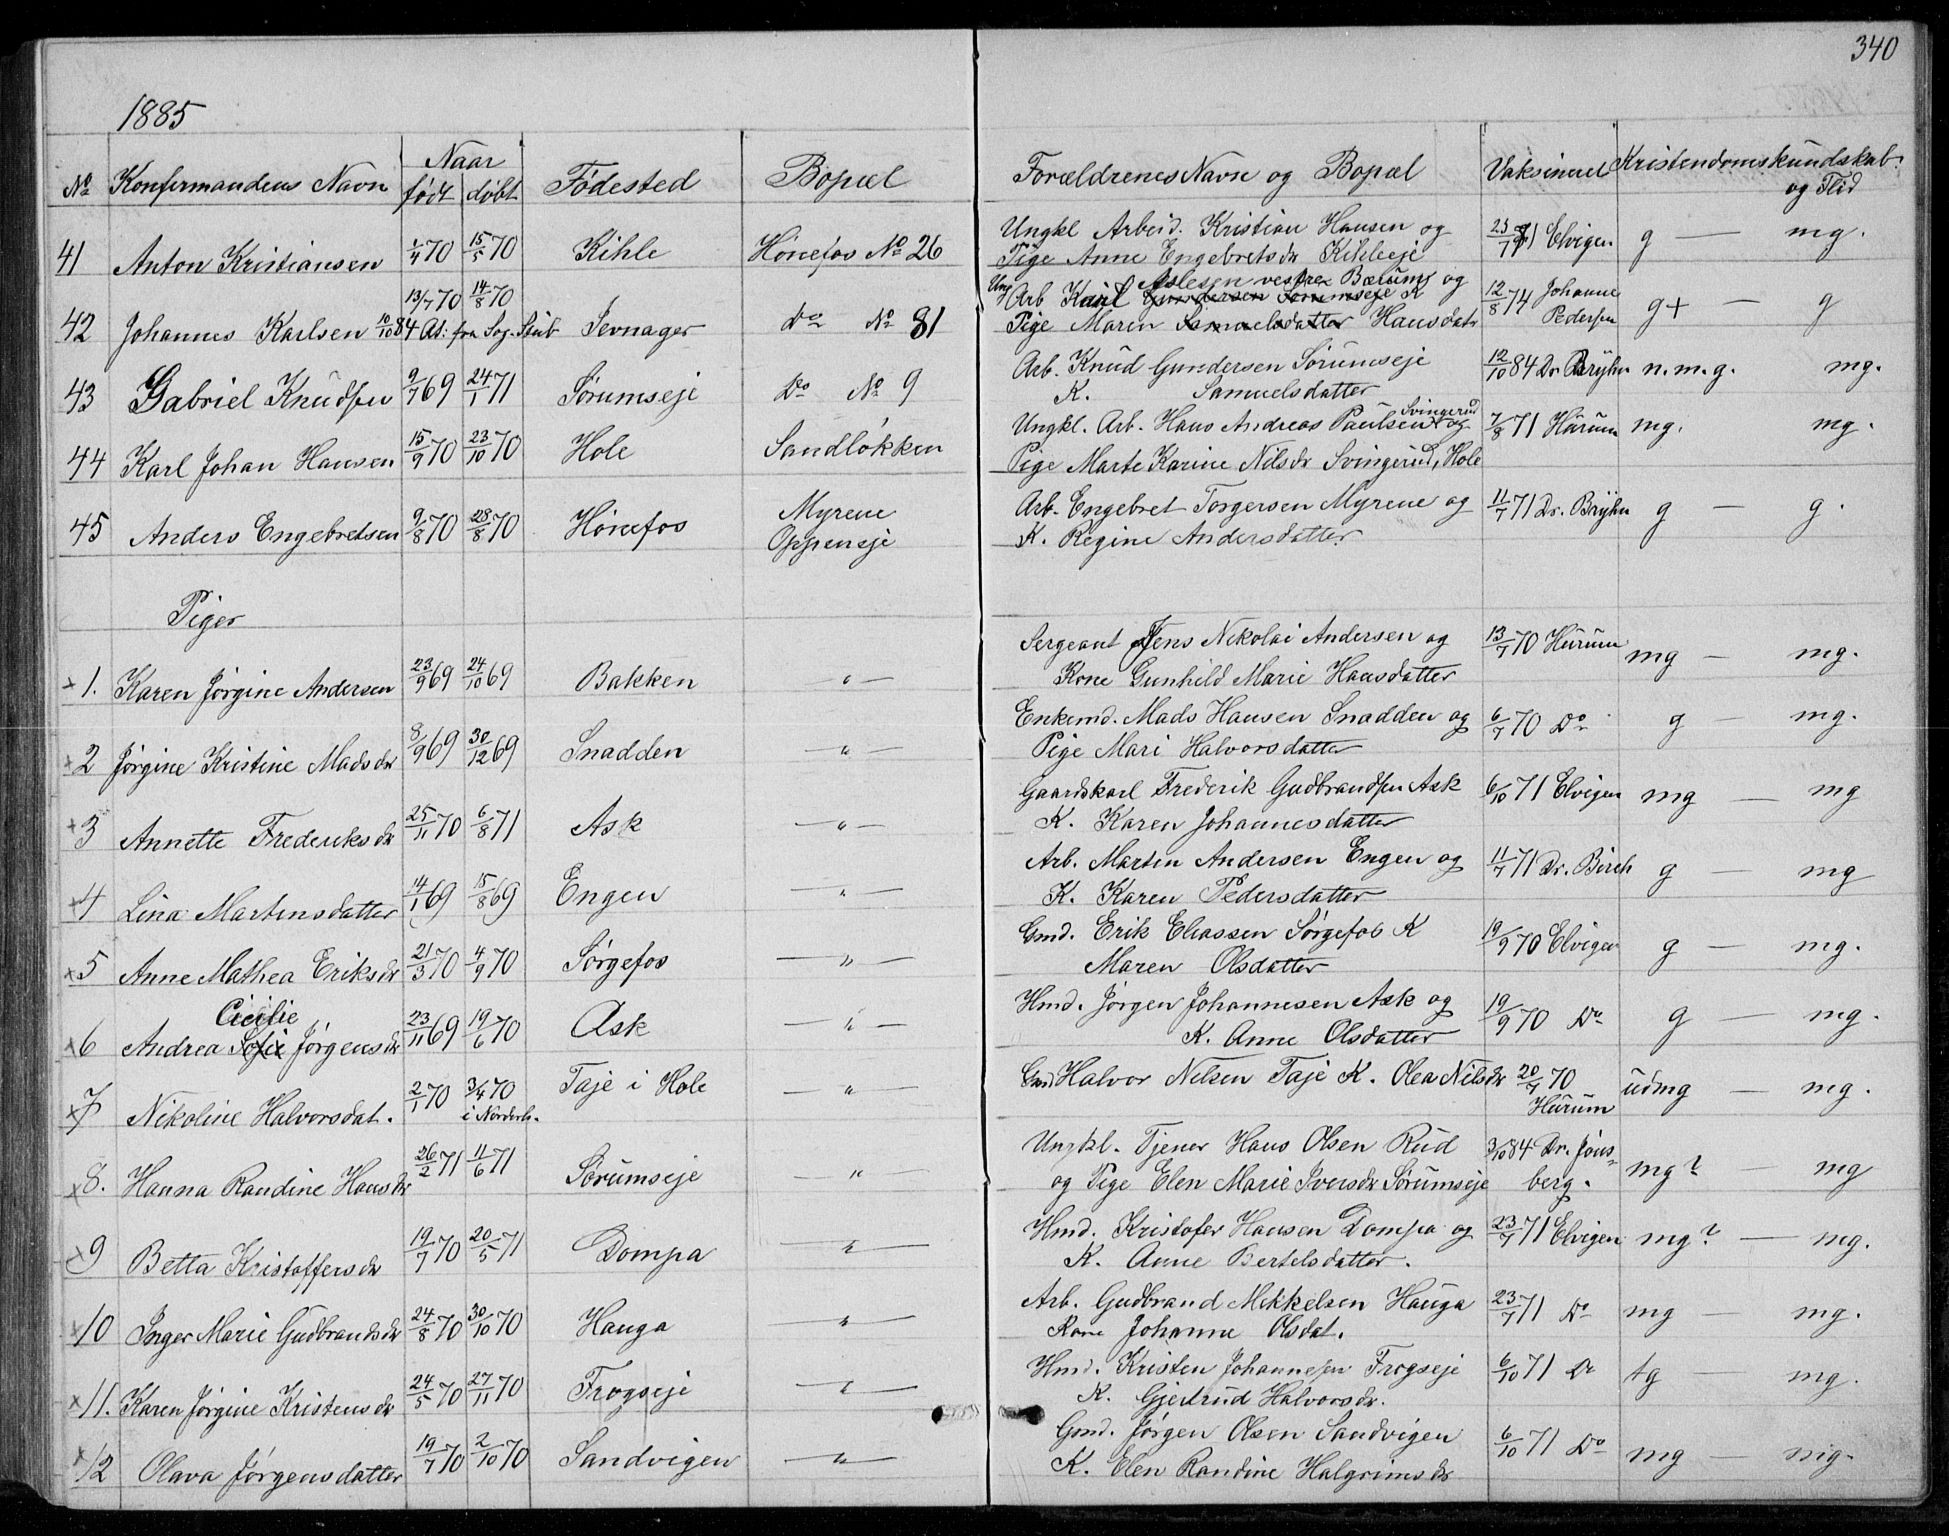 340
1885
No Konfirmandens Navn Naar født døbt Fødested Bopæl Forældrenes Navn og Bopæl Vaksineret Kristendomskundskab og Flid
41 Anton Kristiansen 1/4 70 15/5 70 Kihle Hønefos No 26 Ungkl Arbeid. Kristian Hansen og 23/7 71 Elvigen g — mg.
Pige Anne Engebretsdr Kihleeje
42 Johannes Karlsen 13/7 70 14/8 70 Sevnager Do No 81 Ung Arb Karl Aslesen vestre Bærum og 12/8 74 Johanne Pedersen g+ — g
10/10 84 At. fra Sog. Skib
Gundersen Sørumseje K
Pige Maren Samuelsdatter Hansdatr
43 Gabriel Knudsen 9/7 69 24/1 71 Sørumseje Do No 9 Arb. Knud Gundersen Sørumseje 12/10 84 Dr. Bryhn n.m.g. mg.
K. Samuelsdatter
44 Karl Johan Hansen 15/9 70 23/10 70 Hole Sandløkken Ungkl. Arb. Hans Andreas Paulsen Svingerud og 7/8 71 Hurum mg. mg.
Pige Marte Karine Nilsdr Svingerud, Hole
45 Anders Engebretsen 9/8 70 28/8 70 Hønefos Myrene Oppeneje Arb. Engebret Torgersen Myrene og 11/7 71 Dr. Bryhn g — g.
K. Regine Andersdatter
Piger
x 1. Karen Jørgine Andersen 23/9 69 24/10 69 Bakken — " — Sergeant Jens Nikolai Andersen og 13/7 70 Hurum mg — mg.
Kone Gunhild Marie Hansdatter
x 2 Jørgine Kristine Madsdr 8/9 69 30/12 69 Snadden — " — Enkemd. Mads Hansen Snadden og 6/7 70 Do g — mg.
Pige Mari Halvorsdatter
x 3 Annette Frederiksdr 25/11 70 6/8 71 Ask — " — Gaardskarl Frederik Gudbrandsen Ask 6/10 71 Elvigen mg — mg
K. Karen Johannesdatter
x 4 Lina Martinsdatter 14/1 69 15/8 69 Engen — " — Arb. Martin Andersen Engen og 11/7 71 Dr. Birch g — mg
K. Karen Pedersdatter
x 5 Anne Mathea Eriksdr 21/3 70 4/9 70 Sørgefos — " — Gmd. Erik Eliassen Sørgefos K 19/9 70 Elvigen g — mg.
Maren Olsdatter
Cicilie
x 6 Andrea Sofie Jørgensdr 23/11 69 19/6 70 Ask — " — Hmd. Jørgen Johannesen Ask og 19/9 70 Do g — mg.
K. Anne Olsdatter
x 7 Nikoline Halvorsdat. 2/1 70 3/4 70 i Norderh. Taje i Hole — " — Gmd Halvor Nilsen Taje K. Olea Nilsdr 20/7 70 Hurum udmg — mg.
x 8. Hanna Randine Hansdr 26/2 71 11/6 71 Sørumseje " Ungkl. Tjener Hans Olsen Rud 3/10 84 Dr. Jønsberg. mg? — mg
og Pige Elen Marie Iversdr Sørumseje
x 9 Betta Kristoffersdr 19/7 70 20/5 71 Dompa — " — Hmd. Kristofer Hansen Dompa og 23/7 71 Elvigen mg? — mg.
K. Anne Bertelsdatter.
x 10 Inger Marie Gudbrandsdr 24/8 70 30/10 70 Hauga — " — Arb. Gudbrand Mikkelsen Hauga 23/7 71 Do mg — mg.
Kone Johanne Olsdat.
x 11. Karen Jørgine Kristensdr 24/5 70 27/11 70 Frogseje — " — Hmd. Kristen Johannesen Frogseje 6/10 71 Do tg — mg.
K. Gjertrud Halvorsdr.
x 12 Olava Jørgensdatter 19/7 70 2/10 70 Sandvigen — " — Gmd. Jørgen Olsen Sandvigen 6/10 71 Do mg — mg.
K. Elen Randine Halgrimsdr